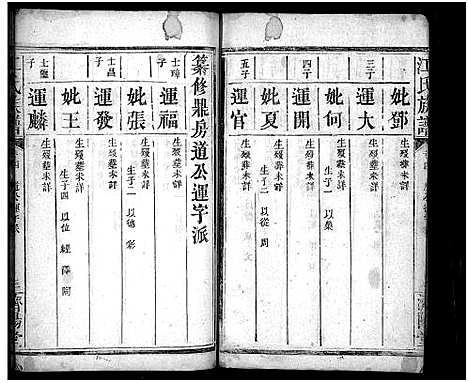 江氏族譜
三子
運大
生歿葬未詳
妣鄧
四子
運開
生歿葬未詳
妣何
生歿葬未詳
生子一 以榮
五子
運官
生歿葬未詳
妣夏
生歿葬未詳
生子二 以從 周
纂修鼎房道公運字派
士璋子
運福
生歿葬未詳
妣張
生歿葬未詳
生子二 以德 彩
士昌子
運發
生歿葬未詳
妣王
生歿葬未詳
生子四 以位 經 澤 開
士 子
運麟
生歿葬未詳
濟陽堂